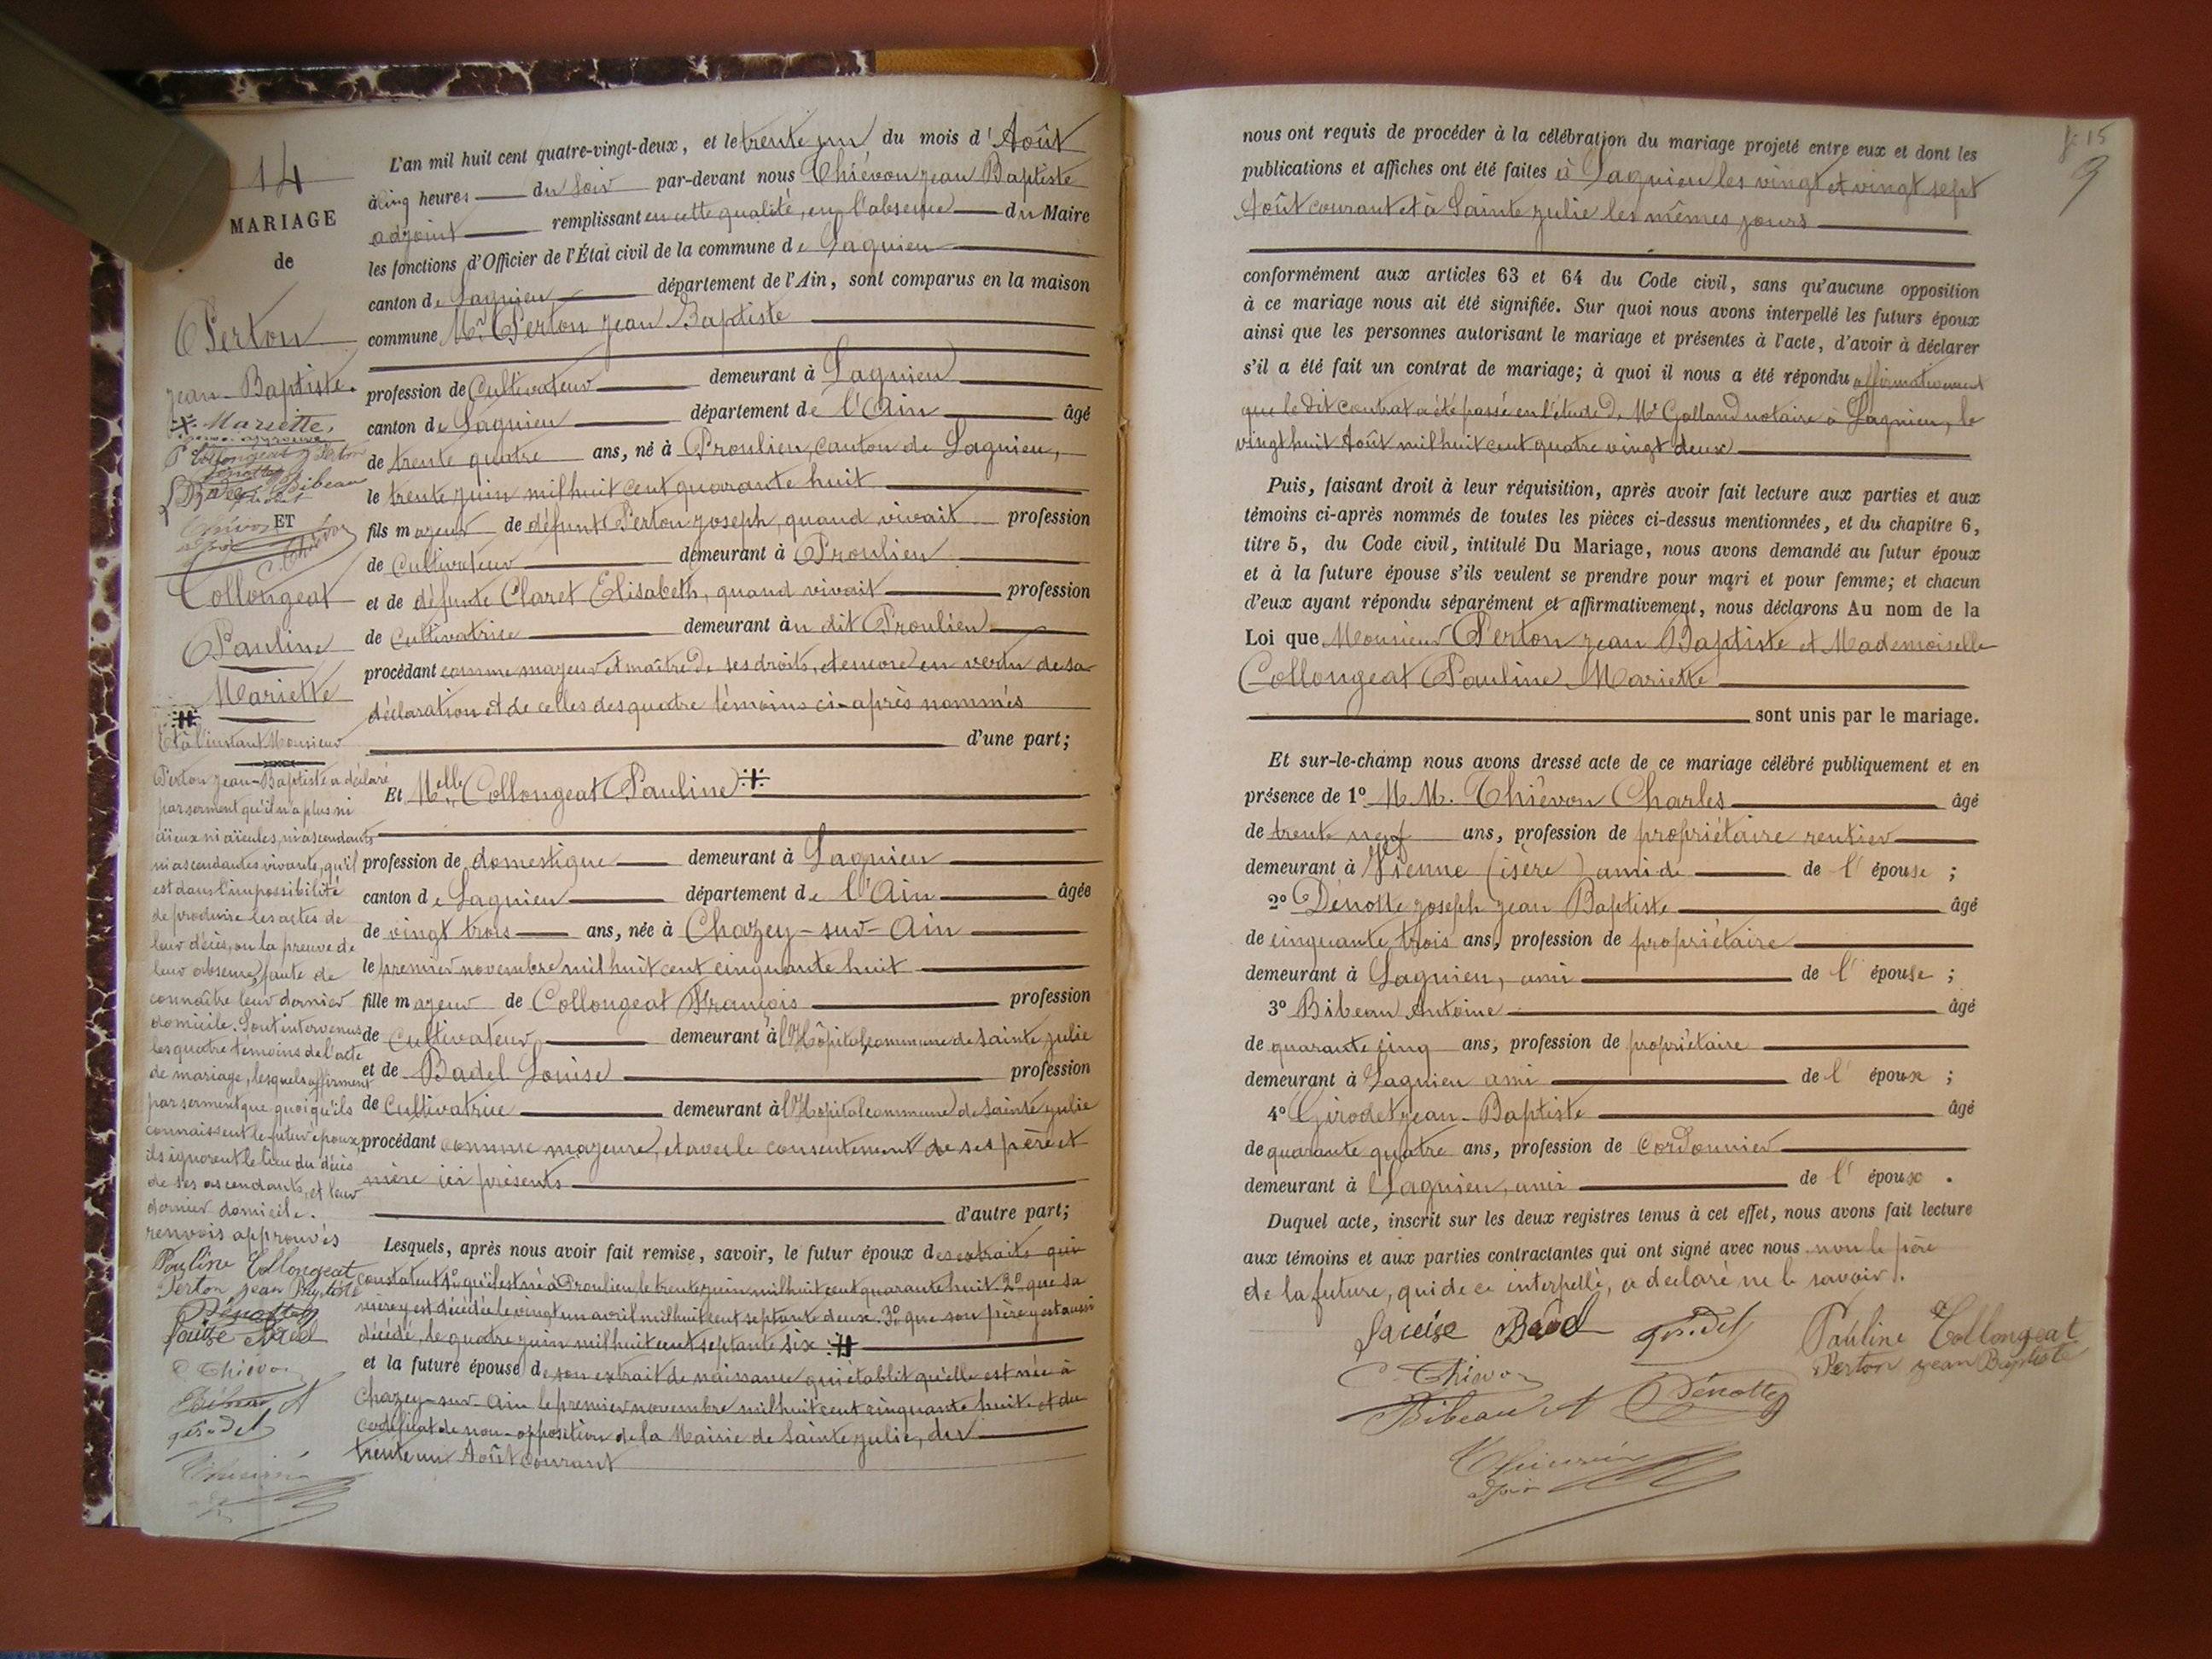 14
MARIAGE
de
Perton
Jean-Baptiste.
Mariette,
P Collongeat Perton
Bibeau
ET
C. Thiévon
Collongeat
Pauline
Mariette
Et à l'instant Monsieur
Perton Jean-Baptiste a déclaré
par serment qu'il n'a plus ni
aïeux ni aïeules, ni ascendants
ni ascendantes vivants, qu'il
est dans l'impossibilité
de produire les actes de
leur décès, ou la preuve de
leur absence, faute de
connaître leur dernier
domicile. Sont intervenus
les quatre témoins de l'acte
de mariage, lesquels affirment
par serment que quoiqu'ils
connaissent le futur époux,
ils ignorent le lieu du décès
de ses ascendants, et leur
dernier domicile.
renvois approuvés
Pauline Collongeat
Perton Jean Baptiste
Dénotte
Louise
C. Thiévon
Bibeau A
girodet
L'an mil huit cent quatre-vingt-deux, et le trente un du mois d'Août
à cinq heures du soir par-devant nous Thiévon Jean Baptiste
adjoint remplissant en cette qualité, en l'absence du Maire
les fonctions d'Officier de l'État civil de la commune de Lagnieu
canton de Lagnieu département de l'Ain, sont comparus en la maison
commune Mr. Perton Jean Baptiste
profession de Cultivateur demeurant à Lagnieu
canton de Lagnieu département de l'Ain âgé
de trente quatre ans, né à Proulieu, canton de Lagnieu,
le trente juin mil huit cent quarante huit
fils majeur de défunt Perton Joseph, quand vivait profession
de Cultivateur demeurant à Proulieu
et de défunte Claret Elisabeth, quand vivait profession
de Cultivatrice demeurant àu dit Proulieu
procédant comme majeur et maître de ses droits, et encore en vertu de sa
déclaration et de celles des quatre témoins ci-après nommés
d'une part;
Et Melle Collongeat Pauline
profession de domestique demeurant à Lagnieu
canton de Lagnieu département de l'Ain âgée
de vingt trois ans, née à Chazey-sur-Ain
le premier novembre mil huit cent cinquante huit
fille majeur de Collongeat François profession
de Cultivateur demeurant à l'Hôpital, commune de Sainte Julie
et de Badel Louise profession
de Cultivatrice demeurant à l'Hôpital commune de Sainte Julie
procédant comme majeure, et avec le consentement de ses père et
mère ici présents
d'autre part;
Lesquels, après nous avoir fait remise, savoir, le futur époux des extraits qui
constatent 1° qu'il est né à Proulieu le trente juin mil huit cent quarante huit. 2° que sa
mère y est décédée le vingt un avril mil huit cent septante deux. 3° que son père y est aussi
décédé, le quatre juin mil huit cent septante six
et la future épouse de son extrait de naissance qui établit qu'elle est née à
Chazey-sur-Ain le premier novembre mil huit cent cinquante huit et du
certificat de non-opposition de la Mairie de Sainte Julie, du
trente un Août courant
fo 15
9
nous ont requis de procéder à la célébration du mariage projeté entre eux et dont les
publications et affiches ont été faites à Lagnieu les vingt et vingt sept
Août courant et à Sainte Julie les mêmes jours
conformément aux articles 63 et 64 du Code civil, sans qu'aucune opposition
à ce mariage nous ait été signifiée. Sur quoi nous avons interpellé les futurs époux
ainsi que les personnes autorisant le mariage et présentes à l'acte, d'avoir à déclarer
s'il a été fait un contrat de mariage; à quoi il nous a été répondu affirmativement
que le dit contrat a été passé en l'étude de Me Galland notaire à Lagnieu, le
vingt huit Août mil huit cent quatre vingt deux
Puis, faisant droit à leur réquisition, après avoir fait lecture aux parties et aux
témoins ci-après nommés de toutes les pièces ci-dessus mentionnées, et du chapitre 6,
titre 5, du Code civil, intitulé Du Mariage, nous avons demandé au futur époux
et à la future épouse s'ils veulent se prendre pour mari et pour femme; et chacun
d'eux ayant répondu séparément et affirmativement, nous déclarons Au nom de la
Loi que Monsieur Perton Jean Baptiste et Mademoiselle
Collongeat Pauline Mariette
sont unis par le mariage.
Et sur-le-champ nous avons dressé acte de ce mariage célébré publiquement et en
présence de 1° M.M. Thiévon Charles âgé
de trente neuf ans, profession de propriétaire rentier
demeurant à Vienne (isère) ami de de l'épouse ;
2° Dénotte Joseph Jean Baptiste âgé
de cinquante trois ans, profession de propriétaire
demeurant à Lagnieu, ami de l'épouse ;
3° Bibeau Antoine âgé
de quarante cinq ans, profession de propriétaire
demeurant à Lagnieu ami de l'époux ;
4° Girodet Jean-Baptiste âgé
de quarante quatre ans, profession de Cordonnier
demeurant à Lagnieu, ami de l'époux.
Duquel acte, inscrit sur les deux registres tenus à cet effet, nous avons fait lecture
aux témoins et aux parties contractantes qui ont signé avec nous non le père
de la future, qui de ce interpellé, a déclaré ne le savoir.
Louise Badel girodet Pauline Collongeat
C. Thiévon Perton Jean Baptiste
Bibeau A Dénotte
adjoint